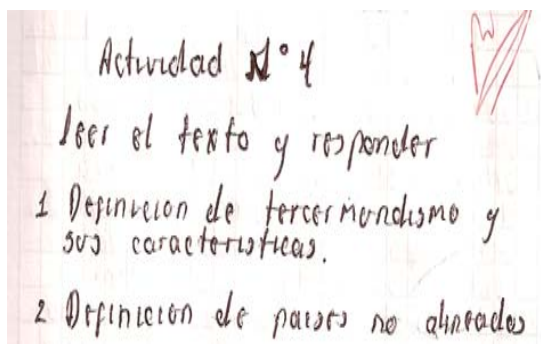 Actividad N° 4
leer el texto y responder
1 Definicion de tercermundismo y
sus caracteristicas.
2 Definicion de paises no alineados